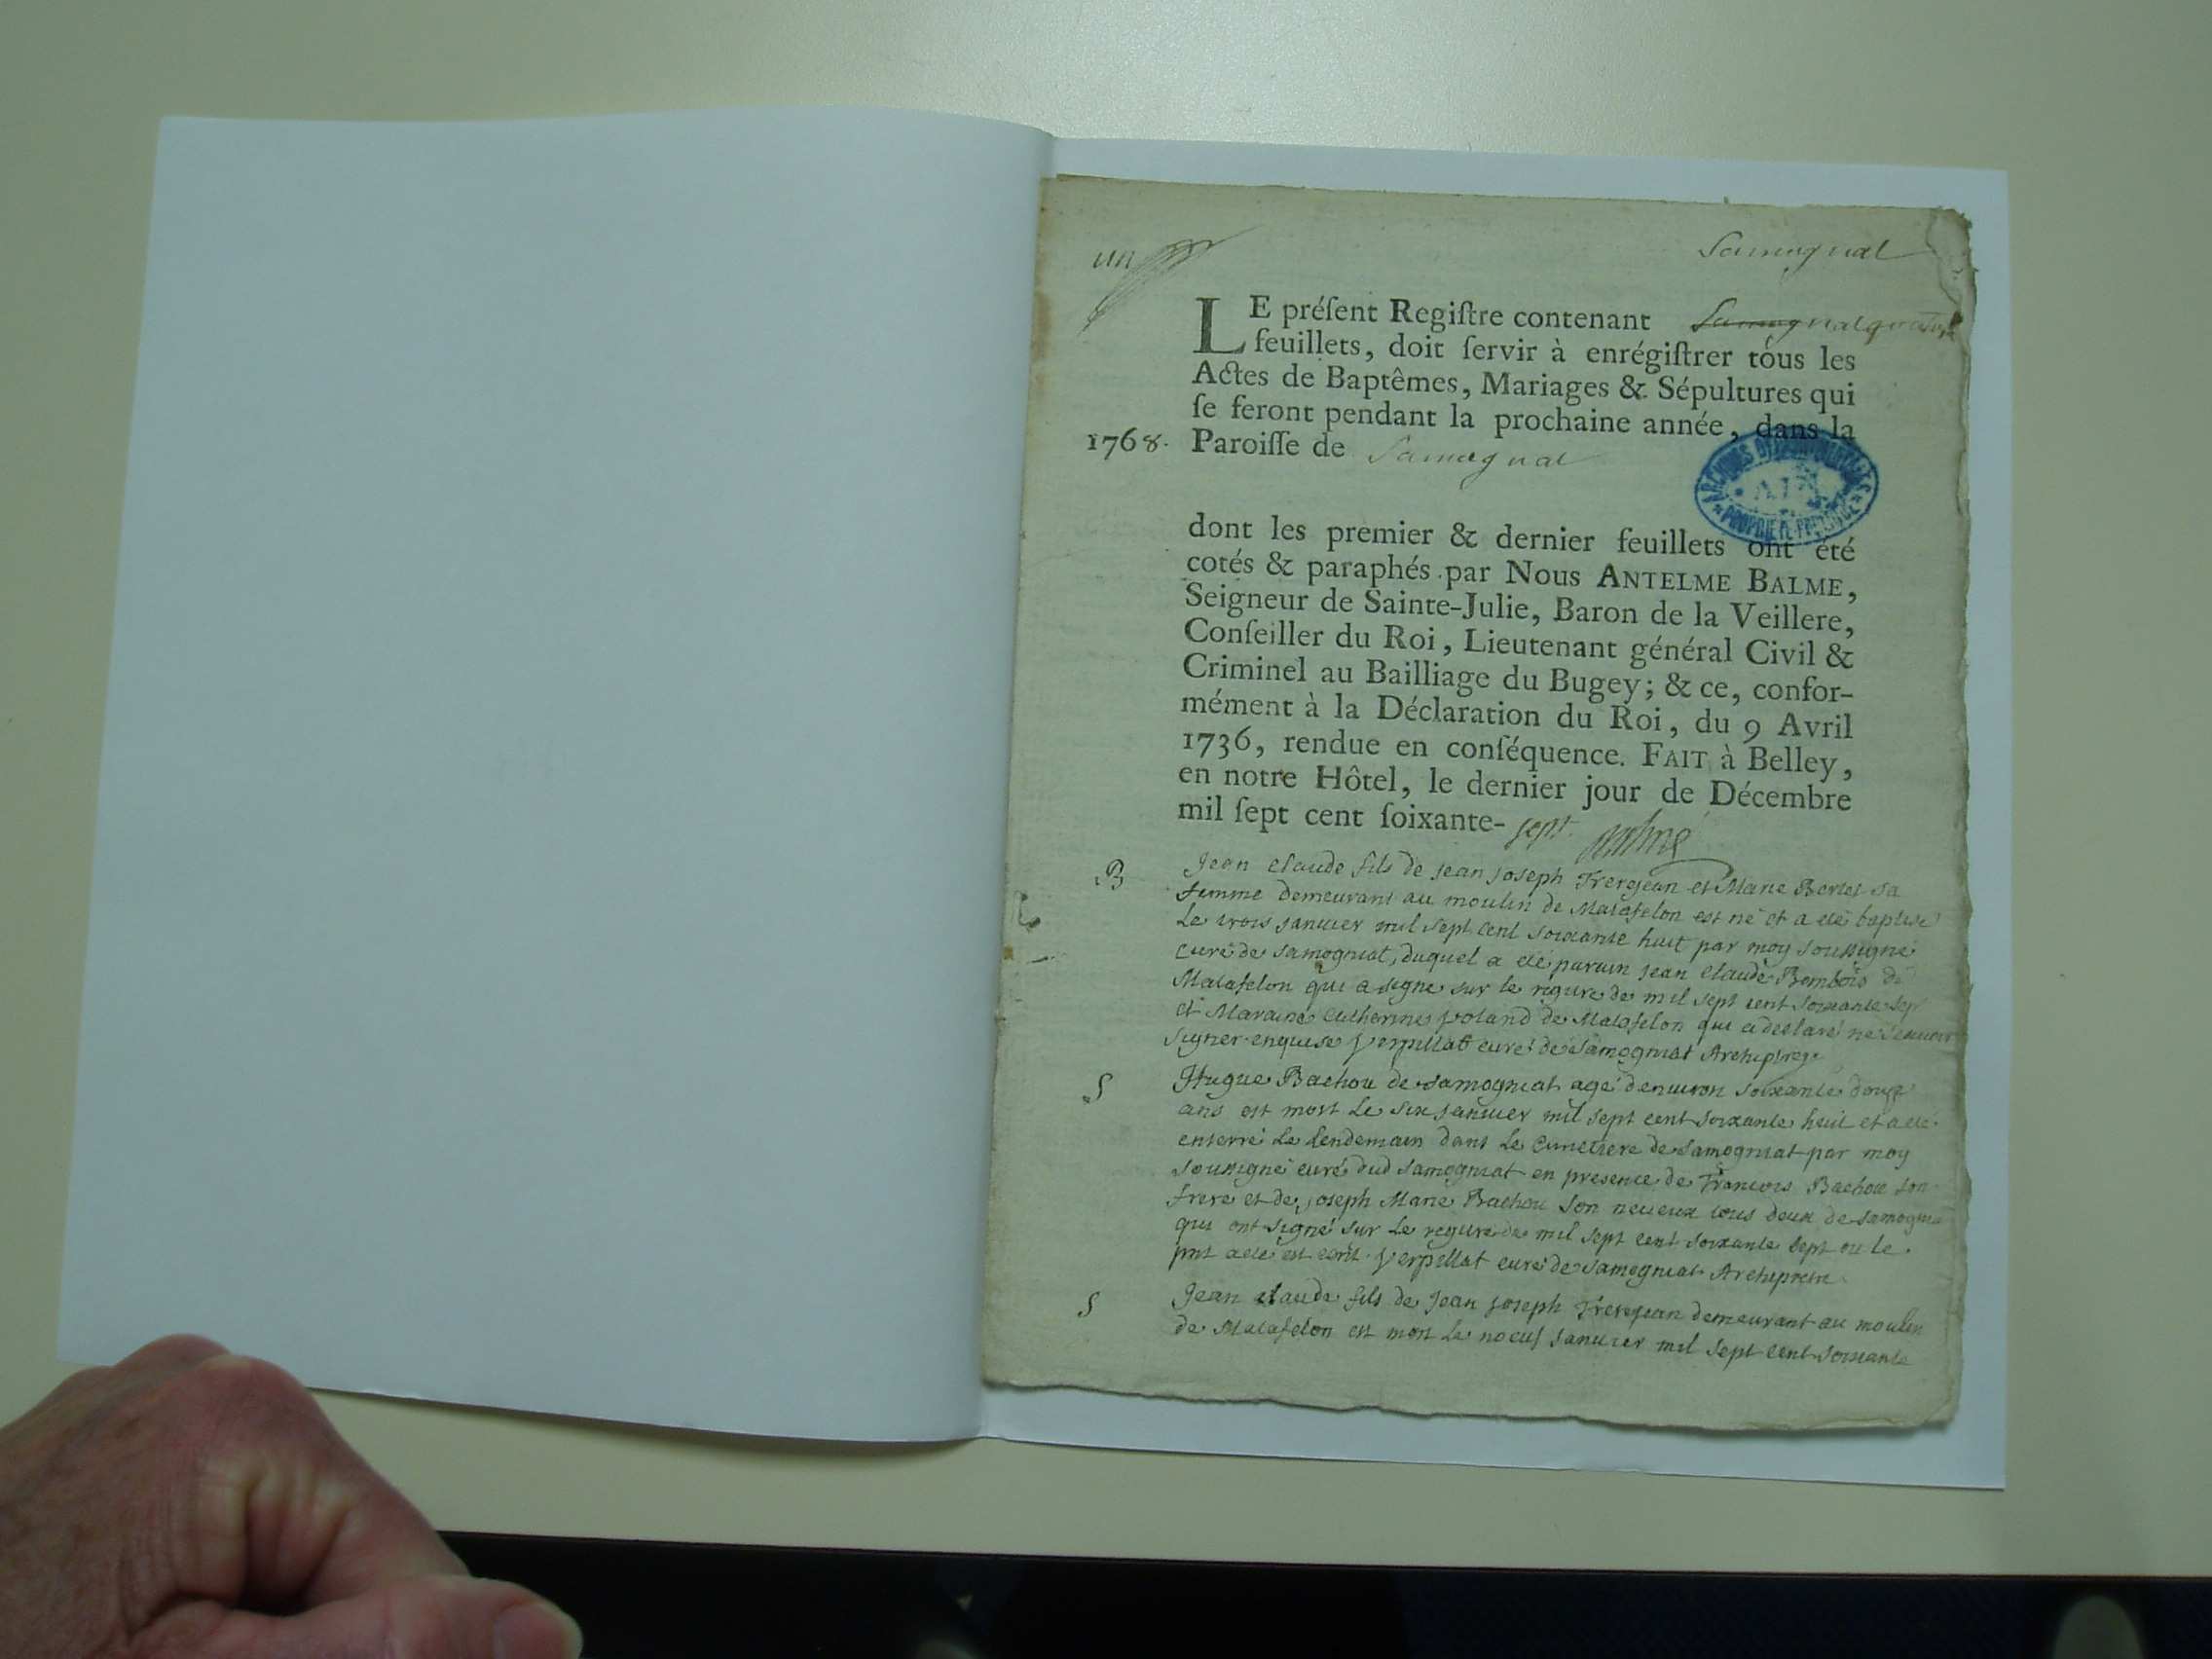 un
Samognat
LE préſent Regiſtre contenant Samognat quatorze
feuillets, doit ſervir à enrégiſtrer tous les
Actes de Baptêmes, Mariages & Sépultures qui
ſe feront pendant la prochaine année, dans la
1768. Paroiſſe de Samognat
ARCHIVES DÉPARTEMENTALES
AIN
PROPRIÉTÉ PUBLIQUE
dont les premier & dernier feuillets ont été
cotés & paraphés par Nous ANTELME BALME,
Seigneur de Sainte-Julie, Baron de la Veillere,
Conſeiller du Roi, Lieutenant général Civil &
Criminel au Bailliage du Bugey; & ce, confor-
mément à la Déclaration du Roi, du 9 Avril
1736, rendue en conſéquence. FAIT à Belley,
en notre Hôtel, le dernier jour de Décembre
mil ſept cent ſoixante-sept. Balme
B Jean Claude fils de jean joseph Frerejean et Marie Bertet sa
femme demeurant au moulin de Matafelon est né et a eté baptisé
Le trois janvier mil sept cent soixante huit par moy soussigné
curé de samognat, duquel a eté parain jean claude Bombois de
Matafelon qui a signé sur le regitre de mil sept cent soixante sep
et Maraine Catherine Joland de Matafelon qui a declaré ne scavoir
signer enquise Verpillat curé de Samognat Archiprtre
S Hugue Bachou de samognat agé denviron soixante douze
ans est mort le six janvier mil sept cent soixante huit et a eté
enterré le lendemain dans le cimetiere de samognat par moy
soussigné curé dud samognat en presence de Francois Bachou son
frere et de joseph Marie Bachou son neveux tous deux de samogna
qui ont signé sur le regitre de mil sept cent soixante sept ou le
pnt acte est ecrit. Verpillat curé de samognat Archipretre
S Jean claude fils de Jean joseph Frerejean demeurant au moulin
de Matafelon est mort le noeuf janvier mil sept cent soixante